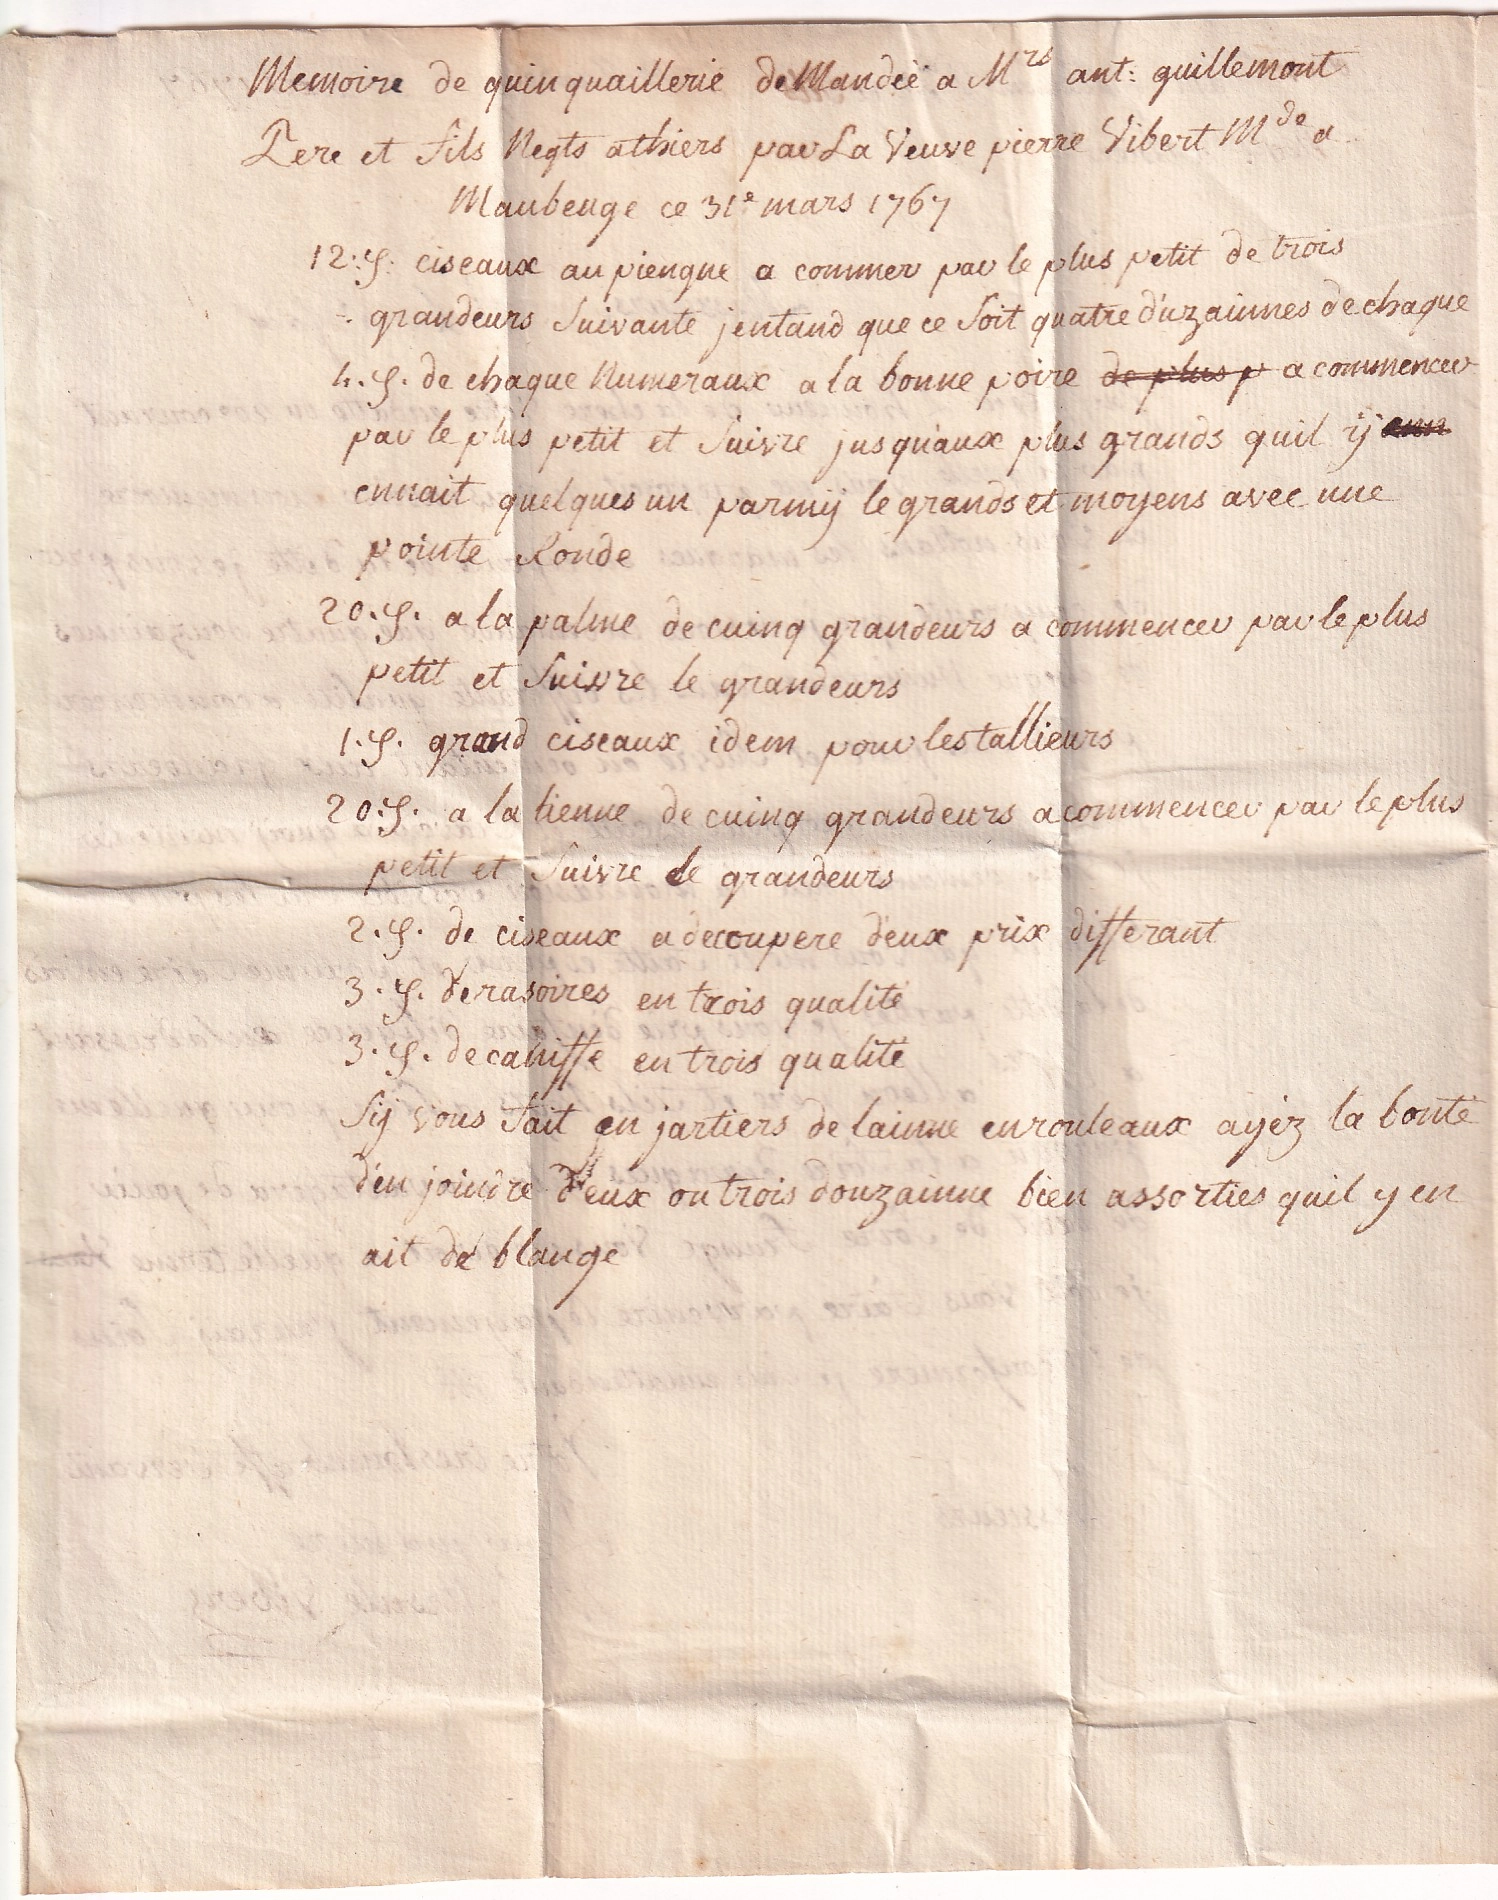 Memoire de quinquaillerie deMandeé a Mrs ant: guillemont
Pere et fils Negts athiers par La Veuve pierre Vibert Mde a
Maubeuge ce 31e mars 1767
12: ciseaux au piengne a commer par le plus petit de trois
grandeurs suivante jentand que ce soit quatre duzainnes de chaque
4. de chaque Numeraux a la bonne poire de plus p a commencer
par le plus petit et suivre jusqu'aux plus grands quil ij
ennait quelques un parmij le grands et moyens avec une
pointe Ronde
20. a la palme de cuinq grandeurs a commencer par le plus
petit et suivre le grandeurs
1. grand ciseaux idem pour les tallieurs
20. a la tienne de cuinq grandeurs a commencer par le plus
petit et suivre le grandeurs
2. de ciseaux a decoupere d'eux prix differant
3. de rasoires en trois qualité
3. de caniffe en trois qualité
sij vous fait en jartiers de lainne en rouleaux ayéz la bonté
d'en joindre d'eux ou trois douzainne bien assorties quil y en
ait de blange